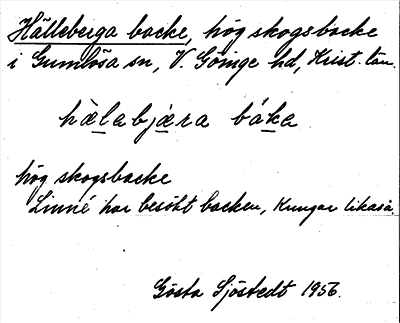 Hälleberga backe, hög skogsbacke
i Gumlösa sn, V. Göinge hd, Krist. län.
hælabjæra báka
hög skogsbacke
Linné har besökt backen, Kungar likaså.
Gösta Sjöstedt 1956.